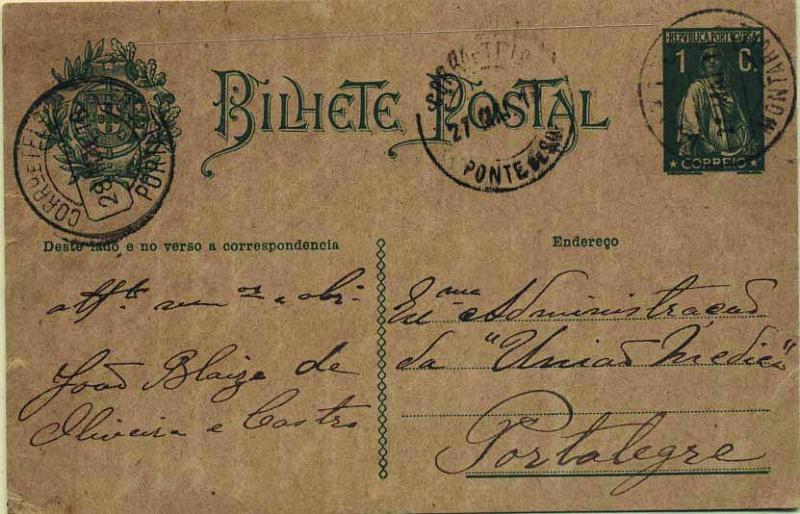 BILHETE POSTAL
REPVBLICA PORTVGVESA
1 C.
CORREIO
28
27
PONTE DE
Deste lado e no verso a correspondencia
Endereço
João Blaize de
Oliveira e Castro
Exma Administração
da "União Medica"
Portalegre